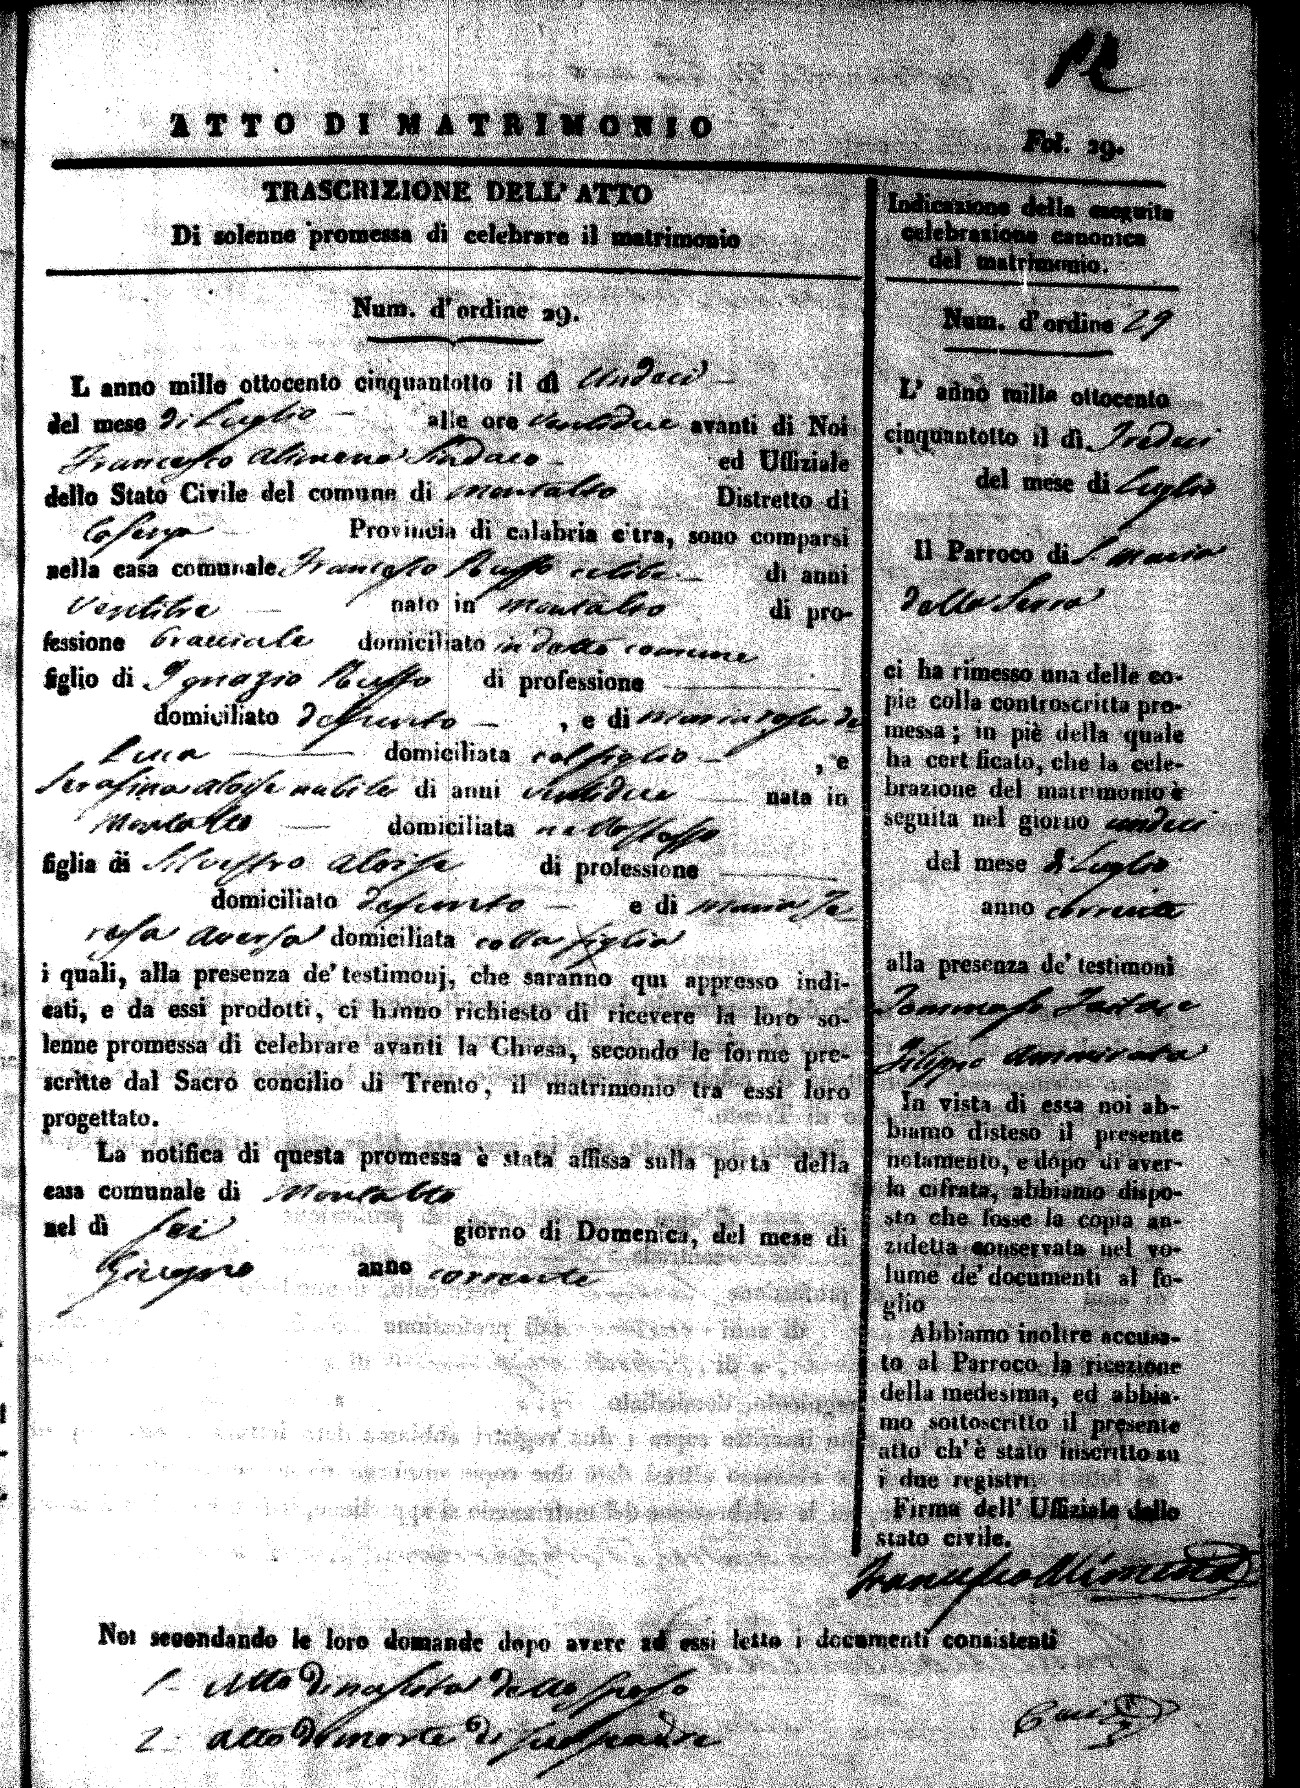 12
ATTO DI MATRIMONIO
Fol. 29.
TRASCRIZIONE DELL' ATTO
Di solenne promessa di celebrare il matrimonio
Num. d' ordine 29.
L anno mille ottocento cinquantotto il dì Undeci
del mese di Luglio alle ore ventidue avanti di Noi
Francesco Alimena Sindaco ed Uffiziale
dello Stato Civile del comune di Montalto Distretto di
Cosenza Provincia di calabria citra, sono comparsi
nella casa comunale Francesco Ruffo celibe di anni
ventitre nato in Montalto di pro-
fessione bracciale domiciliato in detto comune
figlio di Ignazio Ruffo di professione
domiciliato defunto , e di Maria Rosa de
Luca domiciliata col figlio , e
Serafina Aloise nubile di anni ventidue nata in
Montalto domiciliata nello stesso
figlia di Silvestro Aloise di professione
domiciliato defunto e di Maria Te-
resa Aversa domiciliata colla figlia
i quali, alla presenza de' testimonj, che saranno qui appresso indi-
cati, e da essi prodotti, ci hanno richiesto di ricevere la loro so-
lenne promessa di celebrare avanti la Chiesa, secondo le forme pre-
scritte dal Sacro concilio di Trento, il matrimonio tra essi loro
progettato.
La notifica di questa promessa è stata affissa sulla porta della
casa comunale di Montalto
nel dì sei giorno di Domenica, del mese di
Giugno anno corrente
Indicazione della eseguita
celebrazione canonica
del matrimonio.
Num. d' ordine 29
L' anno mille ottocento
cinquantotto il dì Tredeci
del mese di Luglio
Il Parroco di S. Maria
della Serra
ci ha rimesso una delle co-
pie colla controscritta pro-
messa; in piè della quale
ha cert ficato, che la cele-
brazione del matrimonio è
seguita nel giorno undeci
del mese di Luglio
anno corrente
alla presenza de' testimoni
Tommaso
Filippo Ammirata
In vista di essa noi ab-
biamo disteso il presente
notamento, e dopo di aver-
la cifrata, abbiamo dispo-
sto che fosse la copia an-
zidetta conservata nel vo-
lume de' documenti al fo-
glio
Abbiamo inoltre accusa-
to al Parroco la ricezione
della medesima, ed abbia-
mo sottoscritto il presente
atto ch' è stato inscritto su
i due registri.
Firma dell' Uffiziale dello
stato civile.
Francesco Alimena
Noi secondando le loro domande dopo avere ad essi letto i documenti consistenti
1 Atto di nascita dello sposo
2 Atto di morte di suo padre